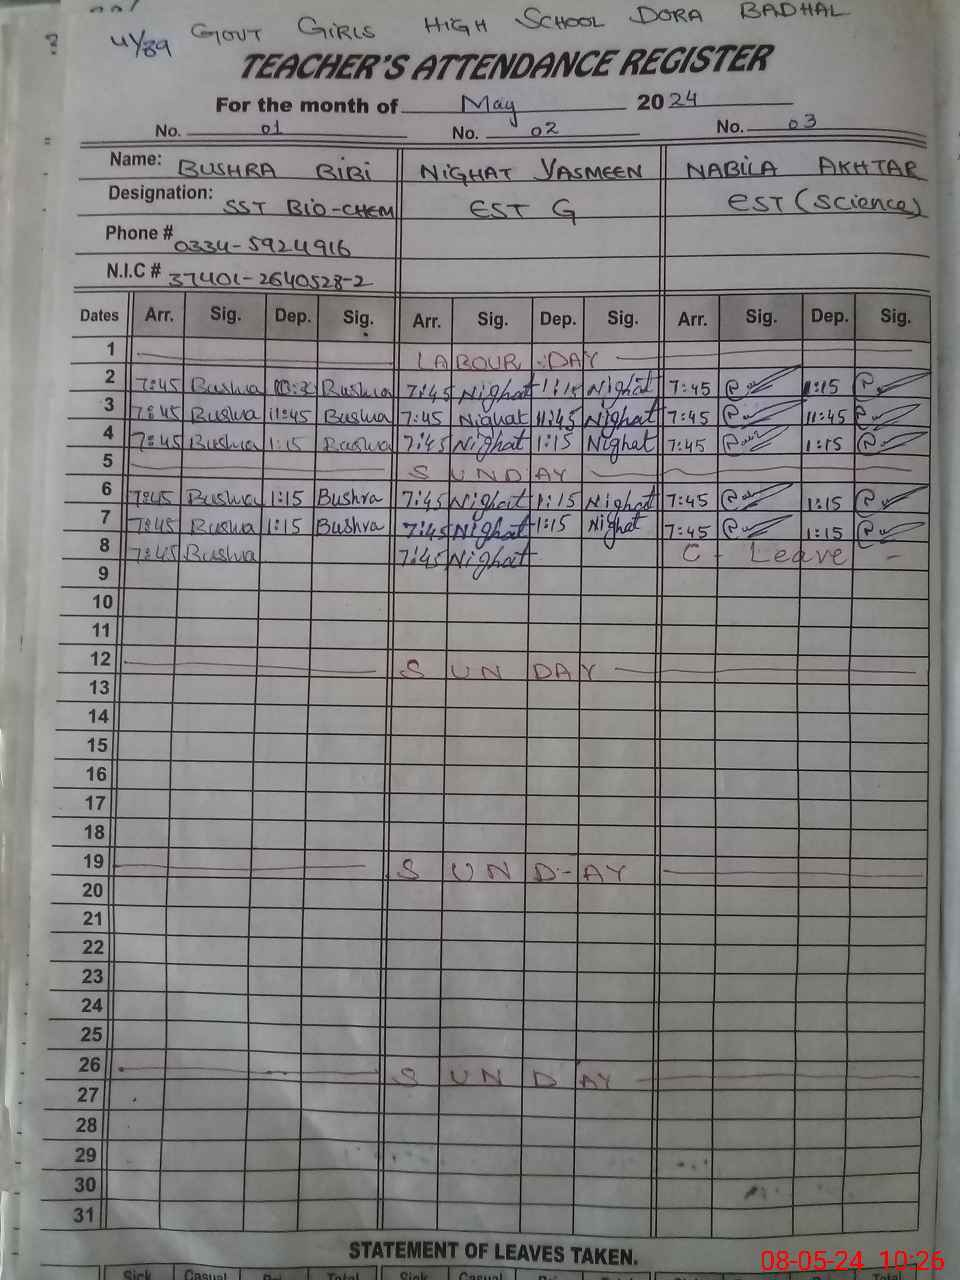 4/89 GOVT GIRLS HIGH SCHOOL DORA BADHAL
TEACHER'S ATTENDANCE REGISTER
For the month of May 2024
No. 01 No. 02 No. 03
Name: BUSHRA BIBI NIGHAT YASMEEN NABILA AKHTAR
Designation: SST BIO-CHEM EST G EST (Science)
Phone # 0334-5924916
N.I.C # 37401-2640528-2
Dates Arr. Sig. Dep. Sig. Arr. Sig. Dep. Sig. Arr. Sig. Dep. Sig.
1 LABOUR DAY
2 7:45 Bushra Bushra 7:45 Nighat 1:15 Nighat 7:45 1:15
3 7:45 Bushra 11:45 Bushra 7:45 Nighat 11:45 Nighat 7:45 11:45
4 7:45 Bushra 1:15 Bushra 7:45 Nighat 1:15 Nighat 7:45 1:15
5 SUNDAY
6 7:45 Bushra 1:15 Bushra 7:45 Nighat 1:15 Nighat 7:45 1:15
7 7:45 Bushra 1:15 Bushra 7:45 Nighat 1:15 Nighat 7:45 1:15
8 7:45 Bushra 7:45 Nighat C - Leave -
9
10
11
12 SUNDAY
13
14
15
16
17
18
19 SUNDAY
20
21
22
23
24
25
26 SUNDAY
27
28
29
30
31
STATEMENT OF LEAVES TAKEN.
08-05-24 10:26
Sick Casual Total Sick Casual Total Sick Casual Total